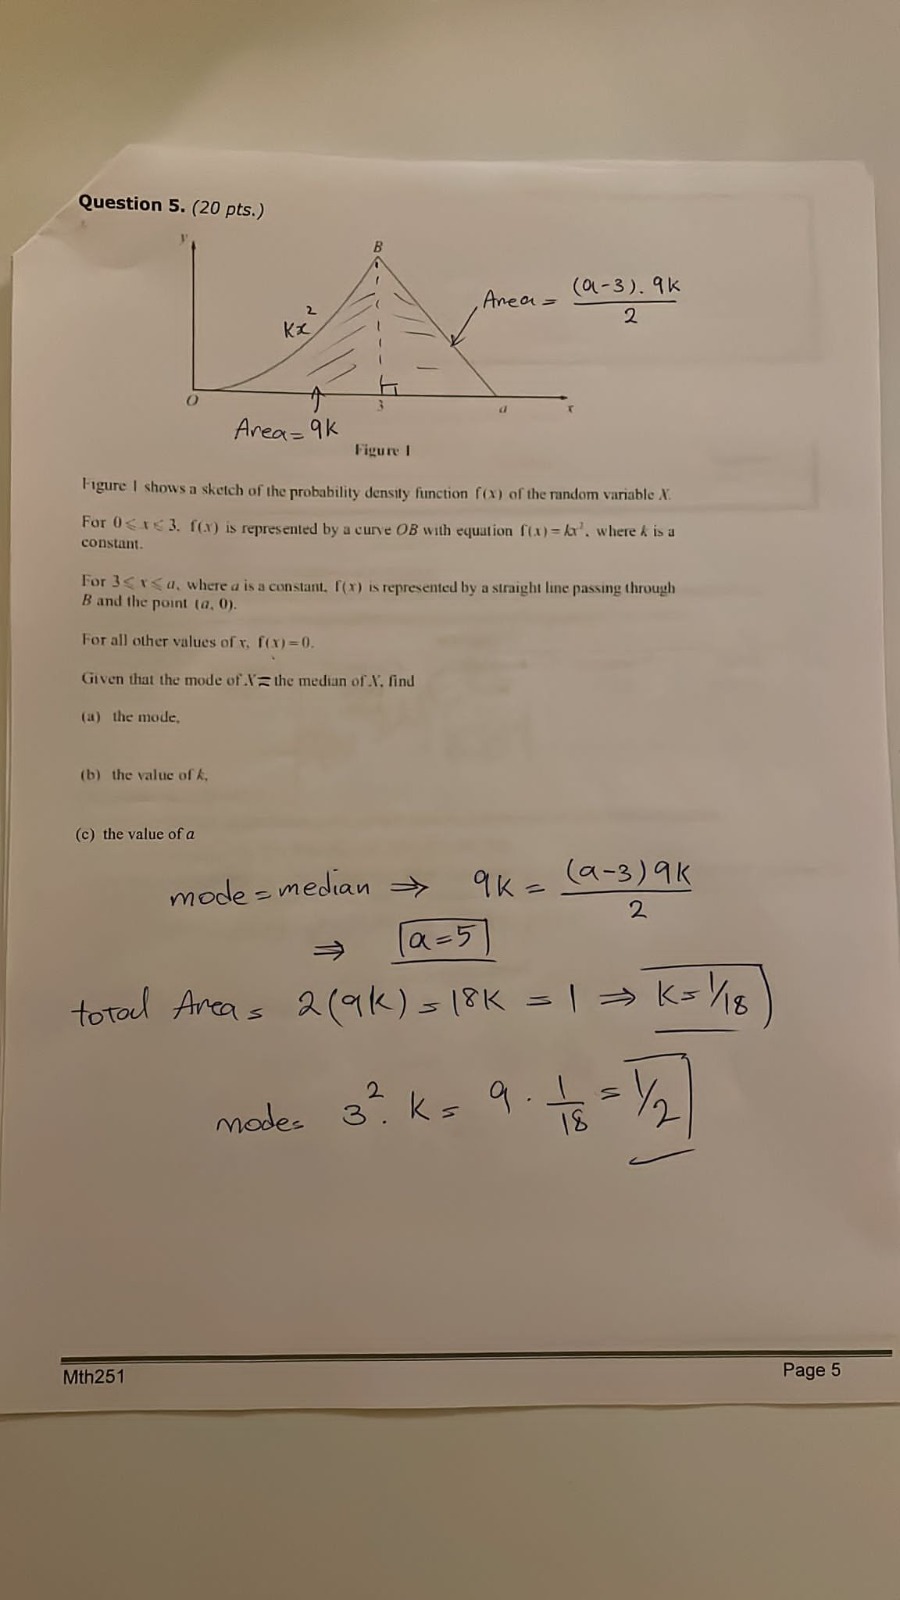 Question 5. (20 pts.)
y
B
Area = (a-3). 9k / 2
kx²
O
3
a
x
Area = 9k
Figure 1
Figure 1 shows a sketch of the probability density function f(x) of the random variable X.
For 0 ⩽ x ⩽ 3, f(x) is represented by a curve OB with equation f(x) = kx², where k is a
constant.
For 3 ⩽ x ⩽ a, where a is a constant, f(x) is represented by a straight line passing through
B and the point (a, 0).
For all other values of x, f(x) = 0.
Given that the mode of X = the median of X, find
(a) the mode,
(b) the value of k,
(c) the value of a
mode = median ⇒ 9k = (a-3) 9k / 2
⇒ a=5
total Area = 2(9k) = 18k = 1 ⇒ k = 1/18
mode = 3². k = 9 . 1/18 = 1/2
Mth251
Page 5